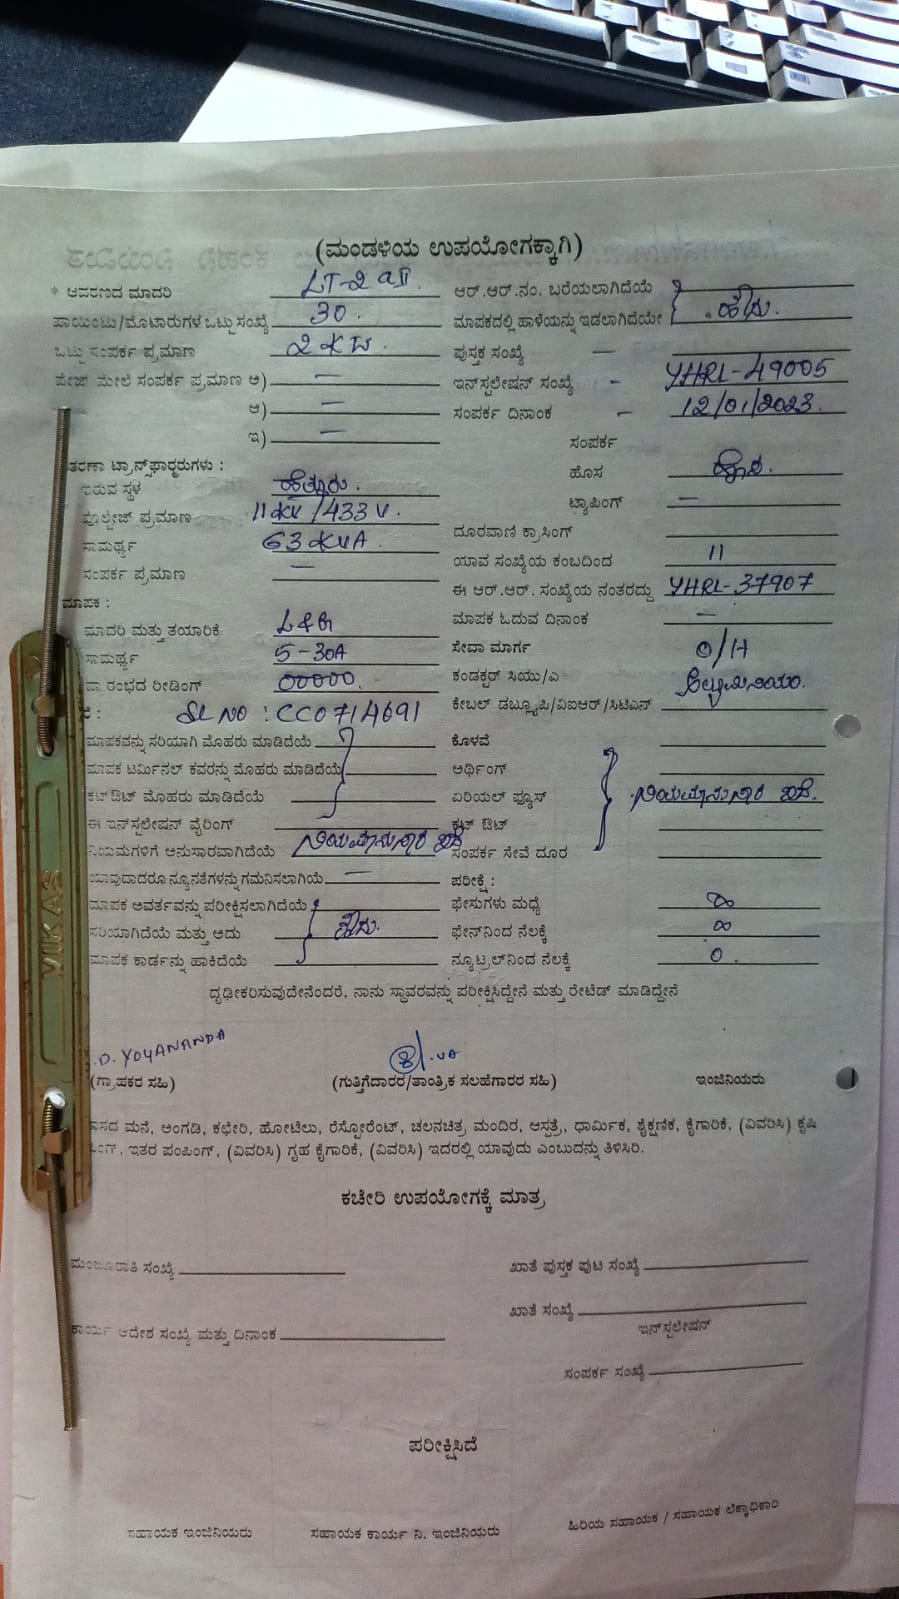 (ಮಂಡಳಿಯ ಉಪಯೋಗಕ್ಕಾಗಿ)
* ಆವರಣದ ಮಾದರಿ LT-2 aII. ಆರ್.ಆರ್.ನಂ. ಬರೆಯಲಾಗಿದೆಯೆ
ಪಾಯಿಂಟು/ಮೋಟಾರುಗಳ ಒಟ್ಟು ಸಂಖ್ಯೆ 30. ಮಾಪಕದಲ್ಲಿ ಹಾಳೆಯನ್ನು ಇಡಲಾಗಿದೆಯೇ ಹೌದು.
ಒಟ್ಟು ಸಂಪರ್ಕ ಪ್ರಮಾಣ 2 KW. ಪುಸ್ತಕ ಸಂಖ್ಯೆ —
ಪೇಜ್ ಮೇಲೆ ಸಂಪರ್ಕ ಪ್ರಮಾಣ ಅ) — ಇನ್‌ಸ್ಟಲೇಷನ್ ಸಂಖ್ಯೆ - YHRL-49005
ಆ) — ಸಂಪರ್ಕ ದಿನಾಂಕ - 12/01/2023.
ಇ) — ಸಂಪರ್ಕ
ತರಣಾ ಟ್ರಾನ್ಸ್‌ಫಾರ್ಮರುಗಳು : ಹೊಸ ಹೊಸ.
ಇರುವ ಸ್ಥಳ ಹೆತ್ತೂರು. ಟ್ಯಾಪಿಂಗ್ —
ವೋಲ್ಟೇಜ್ ಪ್ರಮಾಣ 11 KV /433 V. ದೂರವಾಣಿ ಕ್ರಾಸಿಂಗ್
ಸಾಮರ್ಥ್ಯ 63 KVA ಯಾವ ಸಂಖ್ಯೆಯ ಕಂಬದಿಂದ 11
ಸಂಪರ್ಕ ಪ್ರಮಾಣ — ಈ ಆರ್.ಆರ್. ಸಂಖ್ಯೆಯ ನಂತರದ್ದು YHRL-37907
ಮಾಪಕ : ಮಾಪಕ ಓದುವ ದಿನಾಂಕ —
ಮಾದರಿ ಮತ್ತು ತಯಾರಿಕೆ L&G ಸೇವಾ ಮಾರ್ಗ O/H
ಸಾಮರ್ಥ್ಯ 5-30A ಕಂಡಕ್ಟರ್ ಸಿಯು/ಎ ಅಲ್ಯುಮಿನಿಯಂ.
ಪ್ರಾರಂಭದ ರೀಡಿಂಗ್ 00000. ಕೇಬಲ್ ಡಬ್ಲ್ಯೂಪಿ/ವಿಐಆರ್/ಸಿಟಿಎಸ್
SL NO : CC0714691 ಕೊಳವೆ
ಮಾಪಕವನ್ನು ಸರಿಯಾಗಿ ಮೊಹರು ಮಾಡಿದೆಯೆ ಅರ್ಥಿಂಗ್
ಮಾಪಕ ಟರ್ಮಿನಲ್ ಕವರನ್ನು ಮೊಹರು ಮಾಡಿದೆಯೆ ಏರಿಯಲ್ ಫ್ಯೂಸ್ ನಿಯಮಾನುಸಾರ ಇದೆ.
ಕಟ್‌ಔಟ್ ಮೊಹರು ಮಾಡಿದೆಯೆ ಕಟ್ ಔಟ್
ಈ ಇನ್‌ಸ್ಟಲೇಷನ್ ವೈರಿಂಗ್ ಸಂಪರ್ಕ ಸೇವೆ ದೂರ
ನಿಯಮಗಳಿಗೆ ಅನುಸಾರವಾಗಿದೆಯೆ ನಿಯಮಾನುಸಾರ ಇದೆ
ಯಾವುದಾದರೂ ನ್ಯೂನತೆಗಳನ್ನು ಗಮನಿಸಲಾಗಿಯೆ — ಪರೀಕ್ಷೆ :
ಮಾಪಕ ಆವರ್ತವನ್ನು ಪರೀಕ್ಷಿಸಲಾಗಿದೆಯೆ ಫೇಸುಗಳು ಮಧ್ಯೆ ∞
ಸರಿಯಾಗಿದೆಯೆ ಮತ್ತು ಅದು ಹೌದು. ಫೇಸ್‌ನಿಂದ ನೆಲಕ್ಕೆ ∞
ಮಾಪಕ ಕಾರ್ಡನ್ನು ಹಾಕಿದೆಯೆ ನ್ಯೂಟ್ರಲ್‌ನಿಂದ ನೆಲಕ್ಕೆ 0.
ದೃಢೀಕರಿಸುವುದೇನೆಂದರೆ, ನಾನು ಸ್ಥಾವರವನ್ನು ಪರೀಕ್ಷಿಸಿದ್ದೇನೆ ಮತ್ತು ರೇಟೆಡ್ ಮಾಡಿದ್ದೇನೆ
.D. YOYANANDA
(ಗ್ರಾಹಕರ ಸಹಿ) (ಗುತ್ತಿಗೆದಾರರ/ತಾಂತ್ರಿಕ ಸಲಹೆಗಾರರ ಸಹಿ) ಇಂಜಿನಿಯರು
ಾಸದ ಮನೆ, ಅಂಗಡಿ, ಕಛೇರಿ, ಹೋಟೆಲು, ರೆಸ್ಟೋರೆಂಟ್, ಚಲನಚಿತ್ರ ಮಂದಿರ, ಆಸ್ಪತ್ರೆ, ಧಾರ್ಮಿಕ, ಶೈಕ್ಷಣಿಕ, ಕೈಗಾರಿಕೆ, (ವಿವರಿಸಿ) ಕೃಷಿ
ಪಿಂಗ್, ಇತರ ಪಂಪಿಂಗ್, (ವಿವರಿಸಿ) ಗೃಹ ಕೈಗಾರಿಕೆ, (ವಿವರಿಸಿ) ಇದರಲ್ಲಿ ಯಾವುದು ಎಂಬುದನ್ನು ತಿಳಿಸಿರಿ.
ಕಚೇರಿ ಉಪಯೋಗಕ್ಕೆ ಮಾತ್ರ
ಮಂಜೂರಾತಿ ಸಂಖ್ಯೆ ಖಾತೆ ಪುಸ್ತಕ ಪುಟ ಸಂಖ್ಯೆ
ಖಾತೆ ಸಂಖ್ಯೆ
ಕಾರ್ಯ ಆದೇಶ ಸಂಖ್ಯೆ ಮತ್ತು ದಿನಾಂಕ ಇನ್‌ಸ್ಟಲೇಷನ್
ಸಂಪರ್ಕ ಸಂಖ್ಯೆ
ಪರೀಕ್ಷಿಸಿದೆ
ಸಹಾಯಕ ಇಂಜಿನಿಯರು ಸಹಾಯಕ ಕಾರ್ಯ ನಿ. ಇಂಜಿನಿಯರು ಹಿರಿಯ ಸಹಾಯಕ / ಸಹಾಯಕ ಲೆಕ್ಕಾಧಿಕಾರಿ
VIKAS